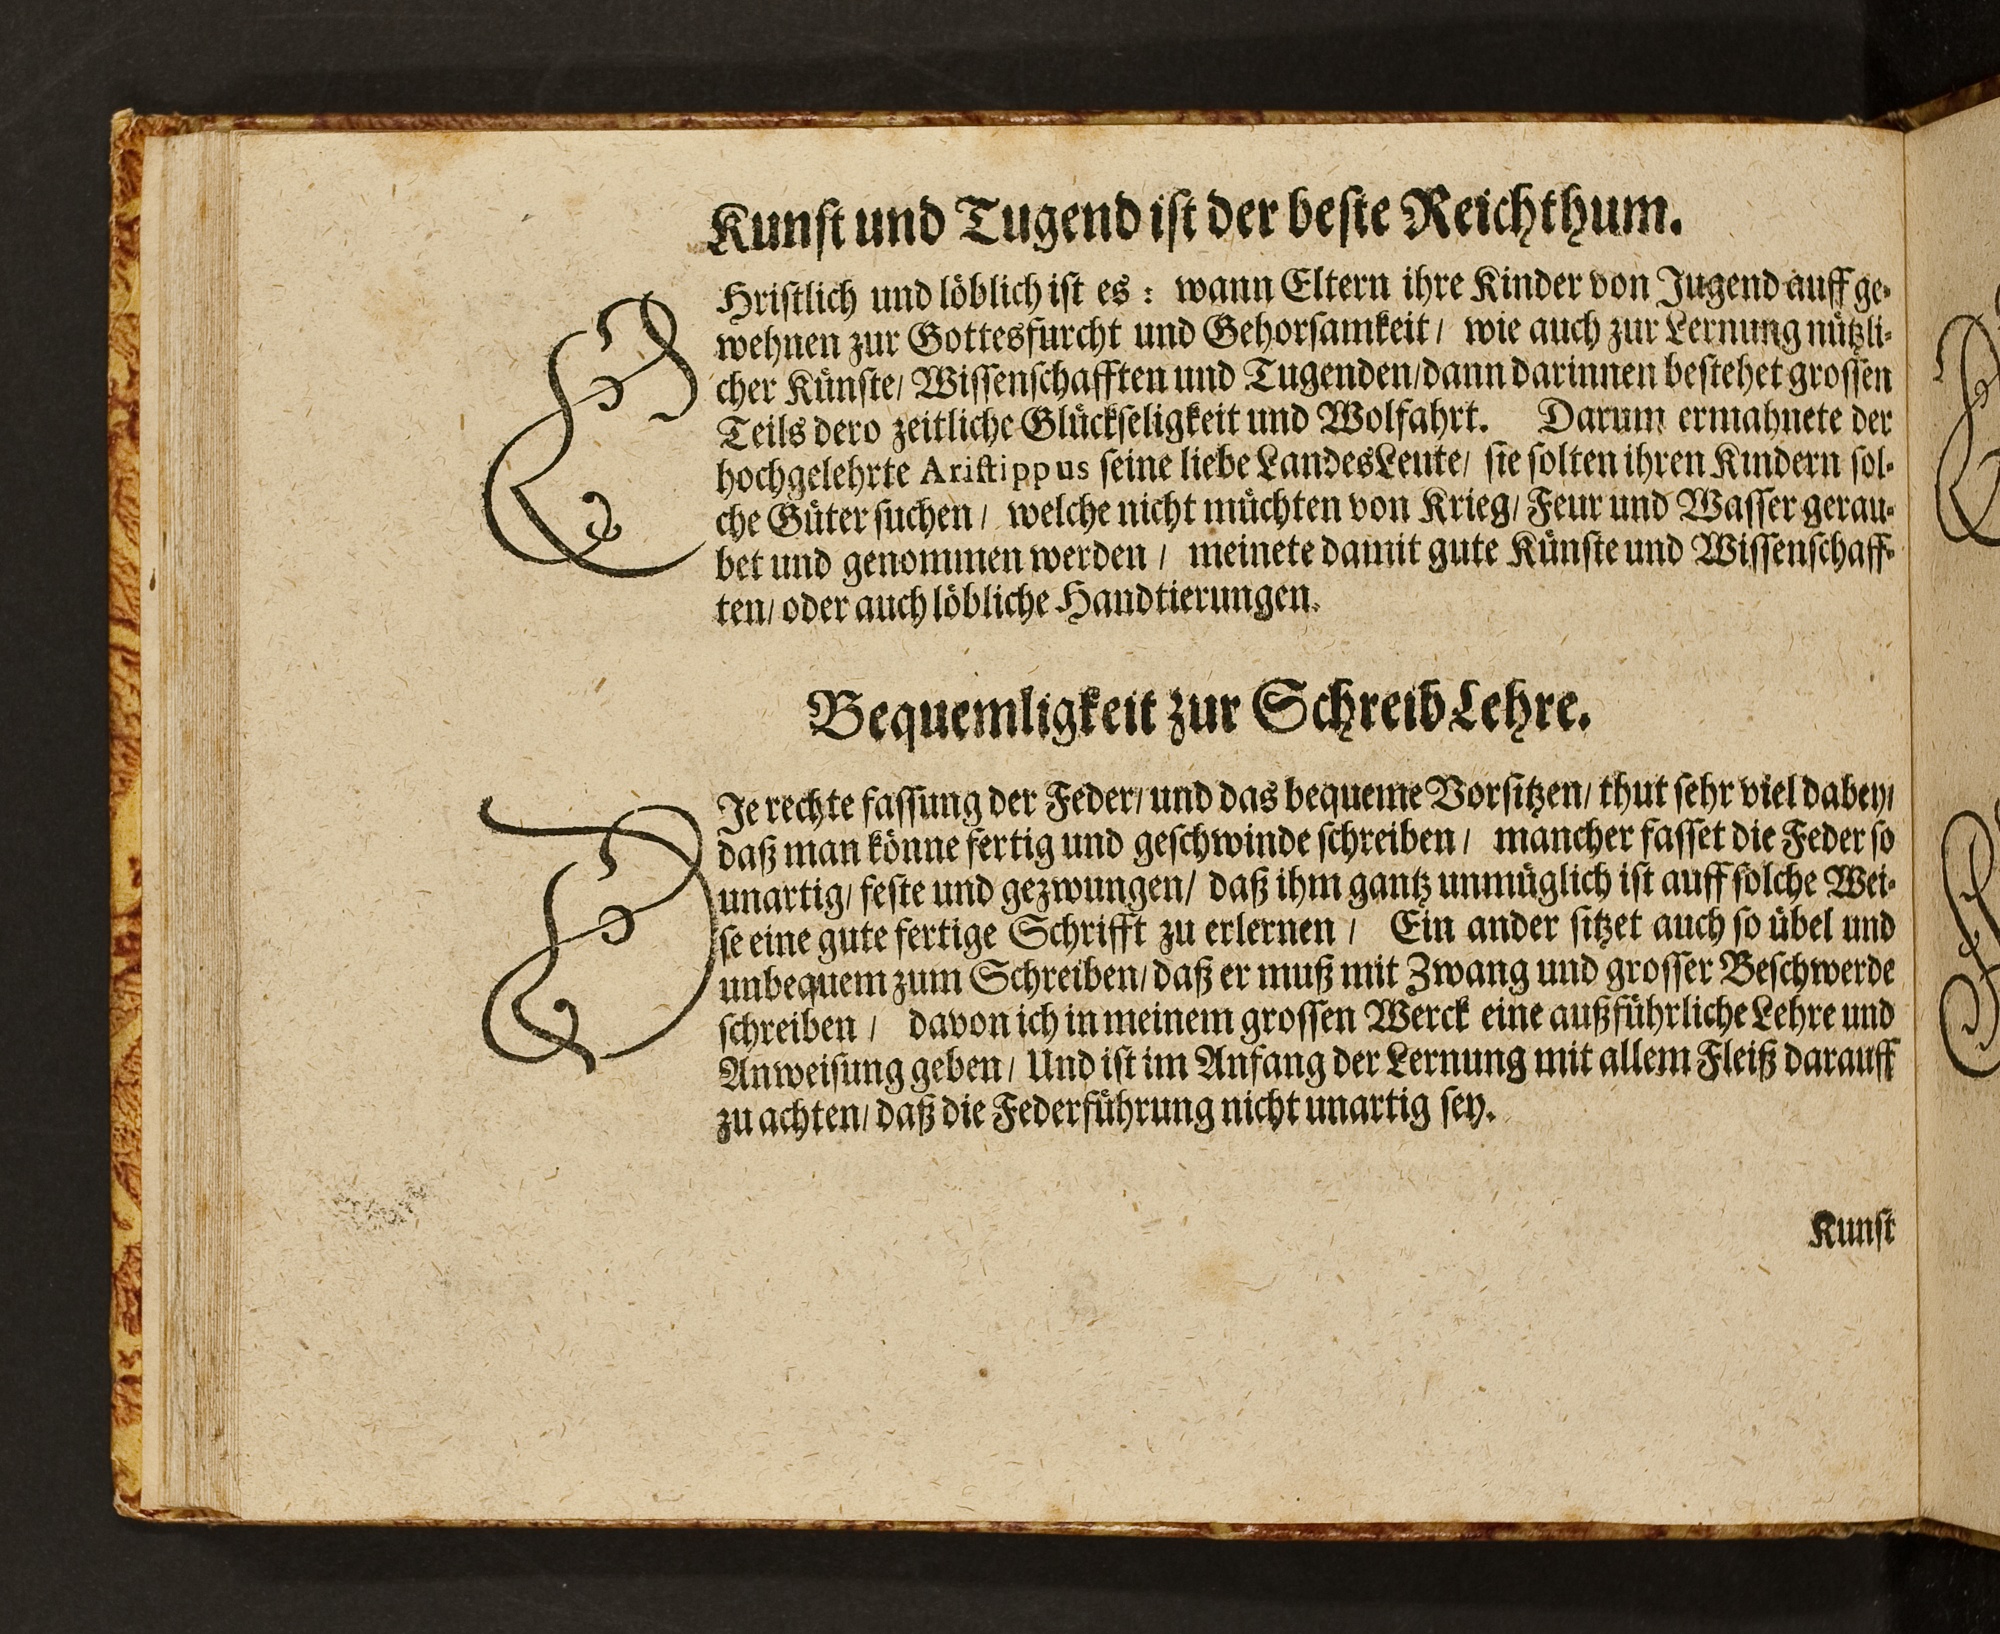 Kunst und Tugend ist der beste Reichthum.
CHristlich und löblich ist es : wann Eltern ihre Kinder von Jugend auff ge-
wehnen zur Gottesfurcht und Gehorsamkeit / wie auch zur Lernung nützli-
cher Künste/ Wissenschafften und Tugenden/dann darinnen bestehet grossen
Teils dero zeitliche Glückseligkeit und Wolfahrt. Darum ermahnete der
hochgelehrte Aristippus seine liebe LandesLeute/ sie solten ihren Kindern sol-
che Güter suchen / welche nicht müchten von Krieg/ Feur und Wasser gerau-
bet und genommen werden / meinete damit gute Künste und Wissenschaff-
ten/ oder auch löbliche Handtierungen.
Bequemligkeit zur Schreib Lehre.
DJe rechte fassung der Feder/ und das bequeme Vorsitzen/ thut sehr viel dabey/
daß man könne fertig und geschwinde schreiben / mancher fasset die Feder so
unartig/ feste und gezwungen/ daß ihm gantz unmüglich ist auff solche Wei-
se eine gute fertige Schrifft zu erlernen / Ein ander sitzet auch so übel und
unbequem zum Schreiben/ daß er muß mit Zwang und grosser Beschwerde
schreiben / davon ich in meinem grossen Werck eine außführliche Lehre und
Anweisung geben/ Und ist im Anfang der Lernung mit allem Fleiß darauff
zu achten/ daß die Federführung nicht unartig sey.
Kunst